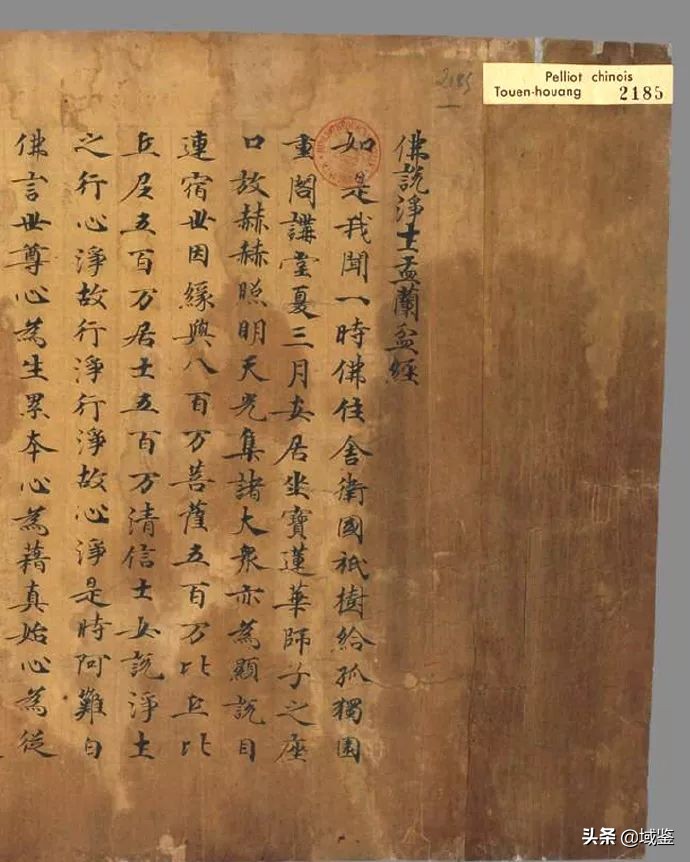 佛說淨土盂蘭盆經
如是我聞一時佛住舍衛國祇樹給孤獨園
重閣講堂夏三月安居坐寶蓮華師子之座
口放赫赫照明天光集諸大衆亦為顯說目
連宿世因緣與八百万菩薩五百万比丘比
丘尼五百万居士五百万清信士女說淨土
之行心淨故行淨行淨故心淨是時阿難白
佛言世尊心為生累本心為藉真始心為従
Pelliot chinois
Touen-houang 2185
2185
头条 @域鉴